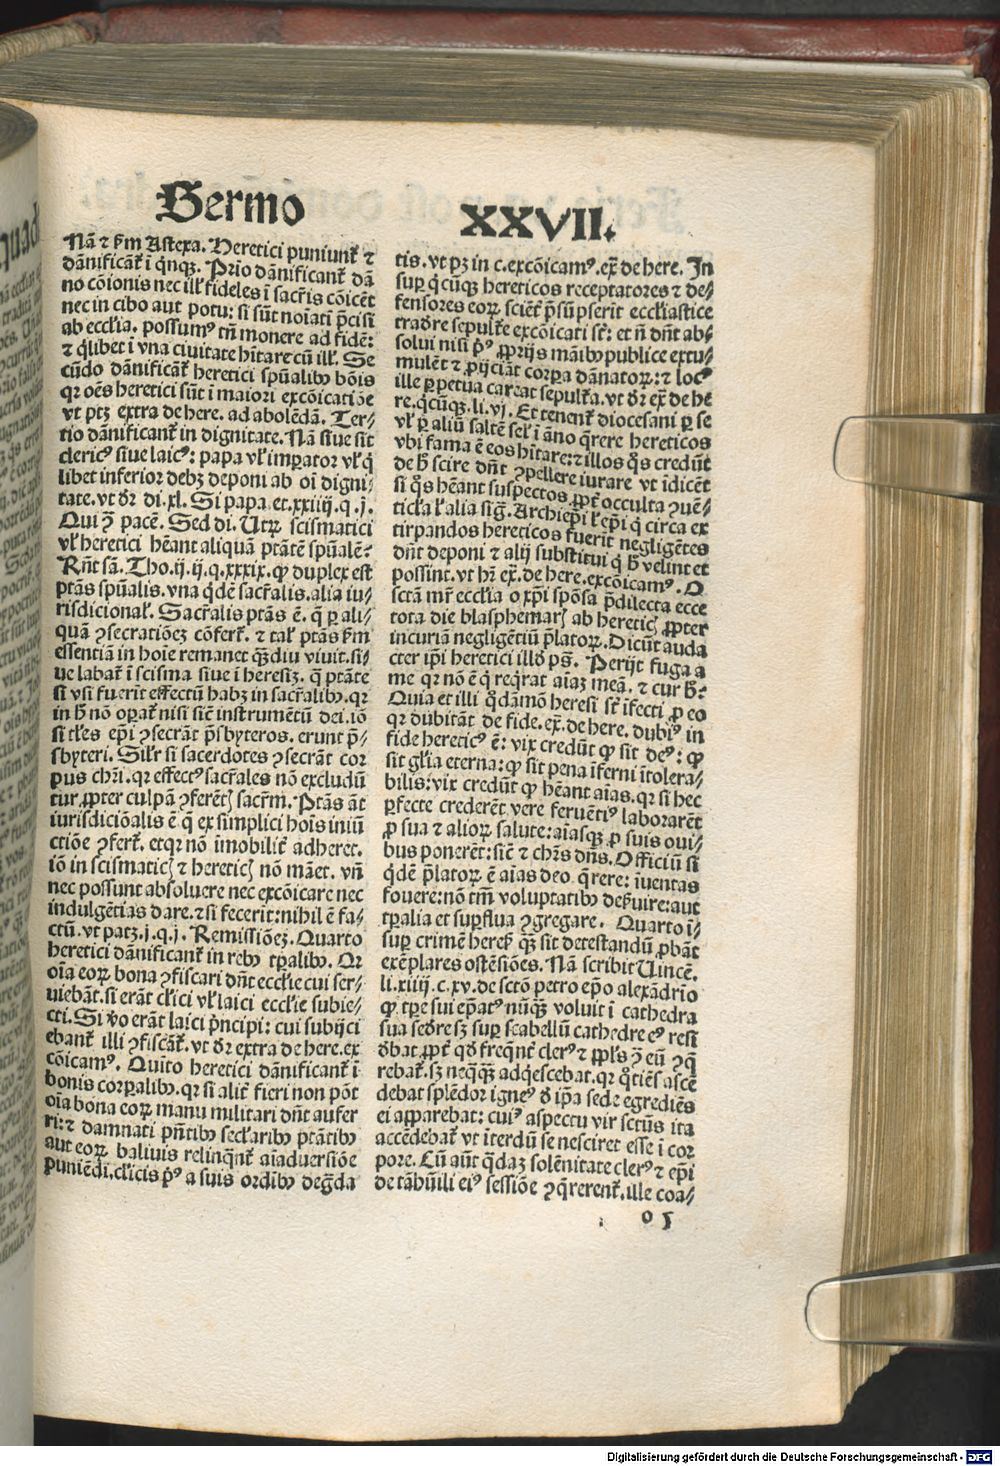 Sermo XXVII.
Nā ⁊ ẜm Astexa. Heretici puniunt᷑ ⁊
dānificāt᷑ ī qͥnqꝫ. Prīo dānificant᷑ dā
no cōionis nec ill᷑ fideles ī sacr̄is cōicēt
nec in cibo aut potu: si sūt noīati p̄cisī
ab eccl̄ia. possumꝰ tn̄ monere ad fidē:
⁊ qͥlibet ī vna ciuitate hītare cū ill᷑. Se
cūdo dānificāt᷑ heretici spūalibꝰ bōis
qꝛ oēs heretici sūt ī maiori excōicatiōe
vt ptꝫ extra de here. ad abolēdā. Ter⸗
tio dānificant᷑ in dignitate. Nā siue sit
clericꝰ siue laicꝰ: papa vl᷑ imꝑator vl᷑ qͥ
libet inferior debꝫ deponi ab oī digni⸗
tate. vt dr̄ di. xl. Si papa et. xxiiij. q. j.
Qui ꝯ̄ pacē. Sed di. Utꝝ scismatici
vl᷑ heretici hēant aliquā ptātē spūalē?
Rn̄t sā. Tho. ij. ij. q. xxxix. ꝙ duplex est
ptās spūalis. vna qͥdē sacr̄alis. alia iu⸗
risdicional᷑. Sacr̄alis ptās ē. q̄ ꝑ ali⸗
quā ꝯsecratiōeꝫ cōfert᷑. ⁊ tal᷑ ptās ẜm
essentiā in hoīe remanet qͣꝫdiu viuit. si⸗
ue labat᷑ ī scisma siue ī heresiꝫ. q̄ ptāte
si vsi fuerīt effectū habꝫ in sacr̄alibꝰ. qꝛ
in h̄ nō oꝑat᷑ nisi sic̄ instrumētū dei. iō
si tl̄es ep̄i ꝯsecrāt p̄sbyteros. erunt p̄⸗
sbyteri. Silr̄ si sacerdotes ꝯsecrāt cor
pus chr̄i. qꝛ effectꝰ sacr̄ales nō excludū
tur ꝓpter culpā ꝯferētꝭ sacrm̄. Ptās āt
iurisdiciōalis ē q̄ ex simplici hoīs iniū
ctiōe ꝯfert᷑. etqꝛ nō īmobilit᷑ adheret.
iō in scismaticꝭ ⁊ hereticꝭ nō māet. vn̄
nec possunt absoluere nec excōicare nec
indulgētias dare. ⁊ si fecerīt: nihil ē fa⸗
ctū. vt patꝫ. j. q. j. Remissiōeꝫ. Quarto
heretici dānificant᷑ in rebꝰ tꝑalibꝰ. Qꝛ
oīa eoꝝ bona ꝯfiscari dn̄t eccl̄ie cui ser⸗
uiebāt. si erāt cl̄ici vl᷑ laici eccl̄ie subie⸗
cti. Si v̊o erāt laici pͥncipi: cui subijci
ebant᷑ illi ꝯfiscāt᷑. vt dr̄ extra de here. ex
cōicamꝰ. Quīto heretici dānificant᷑ ī
bonis corꝑalibꝰ. qꝛ si alit᷑ fieri non pōt
oīa bona eoꝝ manu militari dn̄t aufer
ri: ⁊ damnati pn̄tibꝰ secl̄aribꝰ ptātibꝰ
aut eoꝝ baliuis relinqͣnt᷑ aīaduersiōe
puniēdi. cl̄icis pͥꝰ a suis ordībꝰ degͣda
tis. vt pꝫ in c. excōicamꝰ. ex̄ de here. In
suꝑ qͥcūqꝫ hereticos receptatores ⁊ de⸗
fensores eoꝝ sciēt᷑ p̄sūpserīt eccl̄iastice
trad̄re sepult᷑e excōicati sr̄: et n̄ dn̄t ab⸗
solui nisi pͥꝰ ꝓprijs māibꝰ publice extu⸗
mulēt ⁊ ꝓijciāt corꝑa dānatoꝝ: ⁊ locꝰ
ille ꝑpetua careat sepult᷑a. vt dr̄ ex̄ de he
re. qͥcūqꝫ. li. vj. Et tenent᷑ diocesani ꝑ se
vl᷑ ꝑ aliū saltē sel᷑ ī āno qͣrere hereticos
vbi fama ē eos hītare: ⁊ illos qͦs credūt
de h̄ scire dn̄t ꝯpellere iurare vt īdicēt
si qͦs hēant suspectos ꝓpt᷑ occulta ꝯuē⸗
ticl̄a l᷑ alia sigͣ. Archiep̄i l᷑ ep̄i qͥ circa ex
tirpandos hereticos fuerīt negligētes
dn̄t deponi ⁊ alij substitui qͥ h̄ velint et
possint. vt hr̄ ex̄. de here. excōicamꝰ. O
sctā mr̄ eccl̄ia o xp̄i spōsa p̄dilecta ecce
tota die blasphemarꝭ ab hereticꝭ ꝓpter
incuriā negligētiū p̄latoꝝ. Dicūt auda
cter ip̄i heretici illd̄ pͣs. Perijt fuga a
me qꝛ nō ē qͥ reqͥrat aīaꝫ meā. ⁊ cur h̄?
Quia et illi qͦdāmō heresi sr̄ īfecti ꝓ eo
qꝛ dubitāt de fide. ex̄. de here. dubiꝰ in
fide hereticꝰ ē: vix credūt ꝙ sit deꝰ: ꝙ
sit gl̄ia eterna: ꝙ sit pena īferni ītolera⸗
bilis: vix credūt ꝙ hēant aīas. qꝛ si hec
ꝑfecte crederēt vere feruētiꝰ laborarēt
ꝓ sua ⁊ alioꝝ salute: aīasqꝫ ꝓ suis oui⸗
bus ponerēt: sic̄ ⁊ chr̄s dn̄s. Officiū si
qͥdē p̄latoꝝ ē aīas deo qͣrere: īuentas
fouere: nō tm̄ voluptatibꝰ des̄uire: aut
tꝑalia et suꝑflua ꝯgregare. Quarto ī⸗
suꝑ crimē heres̄ qͣꝫ sit detestandū ꝓbāt
exēplares ostēsiōes. Nā scribit Uincē.
li. xiiij. c. xv. de sctō petro ep̄o alexādrīo
ꝙ tꝑe sui ep̄atꝰ nūqͣꝫ voluit ī cathedra
sua sed̄re sꝫ suꝑ scabellū cathedre eꝰ resi
d̄bat ꝓpt᷑ qd̄ freqͥnt᷑ clerꝰ ⁊ pplꝰs ꝯ̄ eū ꝯq̄
rebat᷑. sꝫ neqͣqͣꝫ adqͥescebat. qꝛ qͦtiēs ascē
debat splēdor igneꝰ d̄ ip̄a sede egrediēs
ei apparebat: cuiꝰ aspectu vir sctūs ita
accēdebat᷑ vt īterdū se nesciret esse ī cor
pore. Cū aūt qͣdaꝫ solēnitate clerꝰ ⁊ ep̄i
de tāh̄ūili eiꝰ sessiōe ꝯqͣrerent᷑. ille coa⸗
o 5
Digitalisierung gefördert durch die Deutsche Forschungsgemeinschaft - DFG